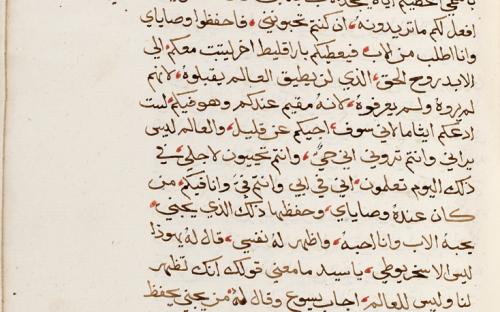 افعل لكم ما تريدونه، ان كنتم تحبوني، فاحفظوا وصاياي
وانا اطلب من الاب، فيعطيكم بارقليط اخر ليثبت معكم، الى
الابد روح الحق، الذي لن يطيق العالم يقبلوه، لانهم
لم يروه ولم يعرفوه، لانه مقيم عندكم وهو فيكم، لست
ادعكم ايتاما لاني سوف، اجيكم عن قليل، والعالم ليس
يراني وانتم تروني اني حي، وانتم تحييون لاجلي، في
ذلك اليوم تعلمون، اني في ابي وانتم في، وانا فيكم، من
كان عنده وصاياي، وحفظها ذلك الذي يحبني،
يحبه الاب وانا احبه، واظهر له نفسي، قال له يهوذا
ليس الاسخريوطي، يا سيد ما معنى قولك انك تظهر
لنا وليس للعالم، اجاب يسوع وقال له، من يحبني يحفظ